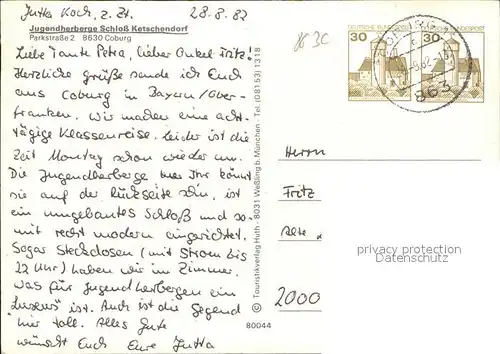 Jutta Koch, z. Zt. 28.8.82
Jugendherberge Schloß Ketschendorf
Parkstraße 2 8630 Coburg
Liebe Tante Petra, lieber Onkel Fritz!
Herzliche Grüße sende ich Euch
aus Coburg in Bayern/Ober-
franken. Wir machen eine acht-
tägige Klassenreise. Leider ist die
Zeit Montag schon wieder um.
Die Jugendherberge, wie Ihr könnt
sie auf der Rückseite sehn, ist
ein umgebautes Schloß und so-
mit recht modern eingerichtet.
Sogar Steckdosen (mit Strom bis
22 Uhr) haben wir im Zimmer,
was für Jugendherbergen ein
"Luxus" ist. Auch ist die Gegend
hier toll. Alles Gute
wünscht Euch Eure Jutta
© Touristikverlag Huth · 8031 Weßling b. München · Tel. (08153) 1318
80044
DEUTSCHE BUNDESPOST
30
30
863
Herrn
Fritz
Alte
2000
privacy protection
Datenschutz